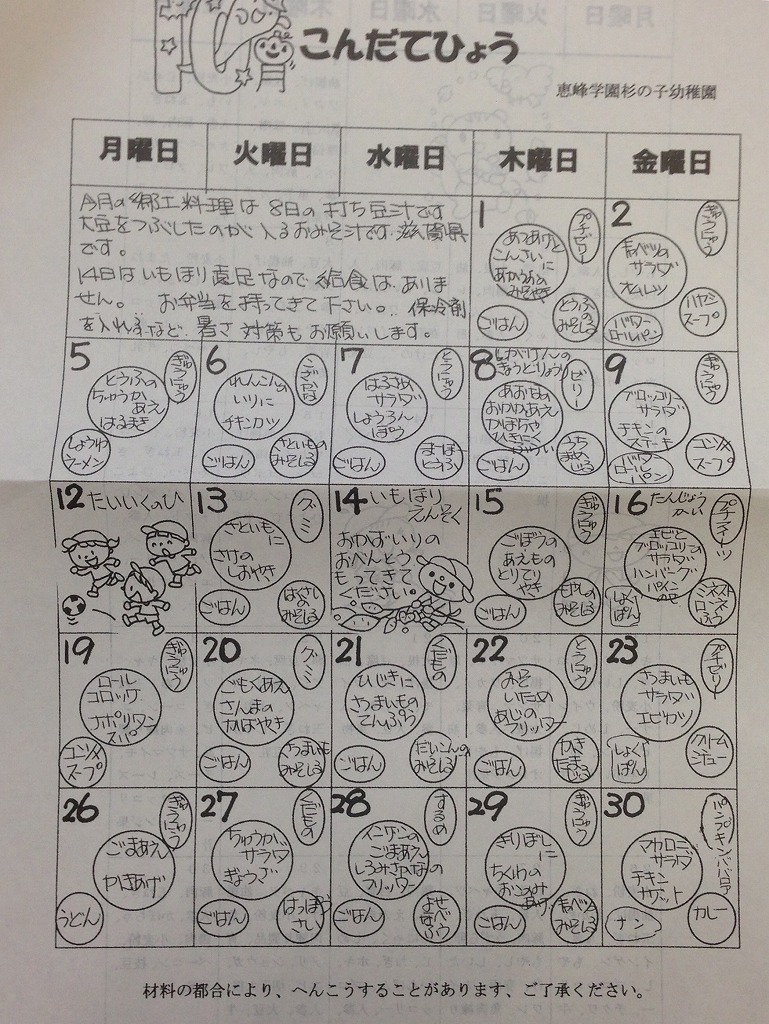 10月 こんだてひょう
恵峰学園杉の子幼稚園
月曜日 火曜日 水曜日 木曜日 金曜日
今月の郷土料理は8日の打ち豆汁です
大豆をつぶしたのが入るおみそ汁です。滋賀県
です。
14日はいもほり遠足なので給食はありま
せん。 お弁当を持ってきて下さい。保冷剤
を入れるなど、暑さ対策もお願いします。
1
プチゼリー
あつあげと
こんさいに
あかうおの
みそやき
ごはん
とうふの
みそしる
2
ぎゅうにゅう
春ベツの
サラダ
オムレツ
バター
ロールパン
ハヤシ
スープ
5
ぎゅうにゅう
とうふの
ちゅうかあえ
はるまき
しょうゆ
ラーメン
6
こざかな
れんこんの
いりに
チキンカツ
ごはん
さといもの
みそしる
7
とうにゅう
はるさめ
サラダ
しょうろん
ぽう
ごはん
まーぼー
どうふ
8
しがけんの
きょうどりょうり
ゼリー
あおなの
おかかあえ
かぼちゃ
ひきにく
ごはん
うち
まめ
じる
9
ぎゅうにゅう
ブロッコリー
サラダ
チキンの
ステーキ
バター
ロール
パン
コンソメ
スープ
12 たいいくのひ
13
グミ
さといもに
さけの
しおやき
ごはん
はくさいの
みそしる
14 いもほり
えんそく
おかずいりの
おべんとう
もってきて
ください。
15
ぎゅうにゅう
ごぼうの
あえもの
とりてり
やき
ごはん
もやしの
みそしる
16 たんじょう
かい
プチフルーツ
エビと
ブロッコリーの
サラダ
ハンバーグ
しょく
ぱん
ミネスト
ローネ
ふう
19
ぎゅうにゅう
ロール
コロッケ
ナポリタン
スパ
コンソメ
スープ
20
グミ
ごもくあえ
さんまの
かばやき
ごはん
さつまいも
みそしる
21
くだもの
ひじきに
さつまいもの
てんぷら
ごはん
だいこんの
みそしる
22
とうにゅう
みそ
いため
あじの
フリッター
ごはん
かき
たま
ふう
23
プチゼリー
さつまいも
サラダ
エビカツ
しょく
ぱん
クリーム
シチュー
26
ぎゅうにゅう
ごまあえ
かきあげ
うどん
27
くだもの
ちゅうか
サラダ
ぎょうざ
ごはん
はっぽう
さい
28
するめ
インゲンの
ごまあえ
しろみざかなの
フリッター
ごはん
よせ
なべ
ふう
29
ぎゅうにゅう
きりぼし
に
ちくわの
おこのみ
あげ
ごはん
春ベツの
みそしる
30
パンプキンババロア
マカロニ
サラダ
チキン
ナゲット
ナン
カレー
材料の都合により、へんこうすることがあります、ご了承ください。